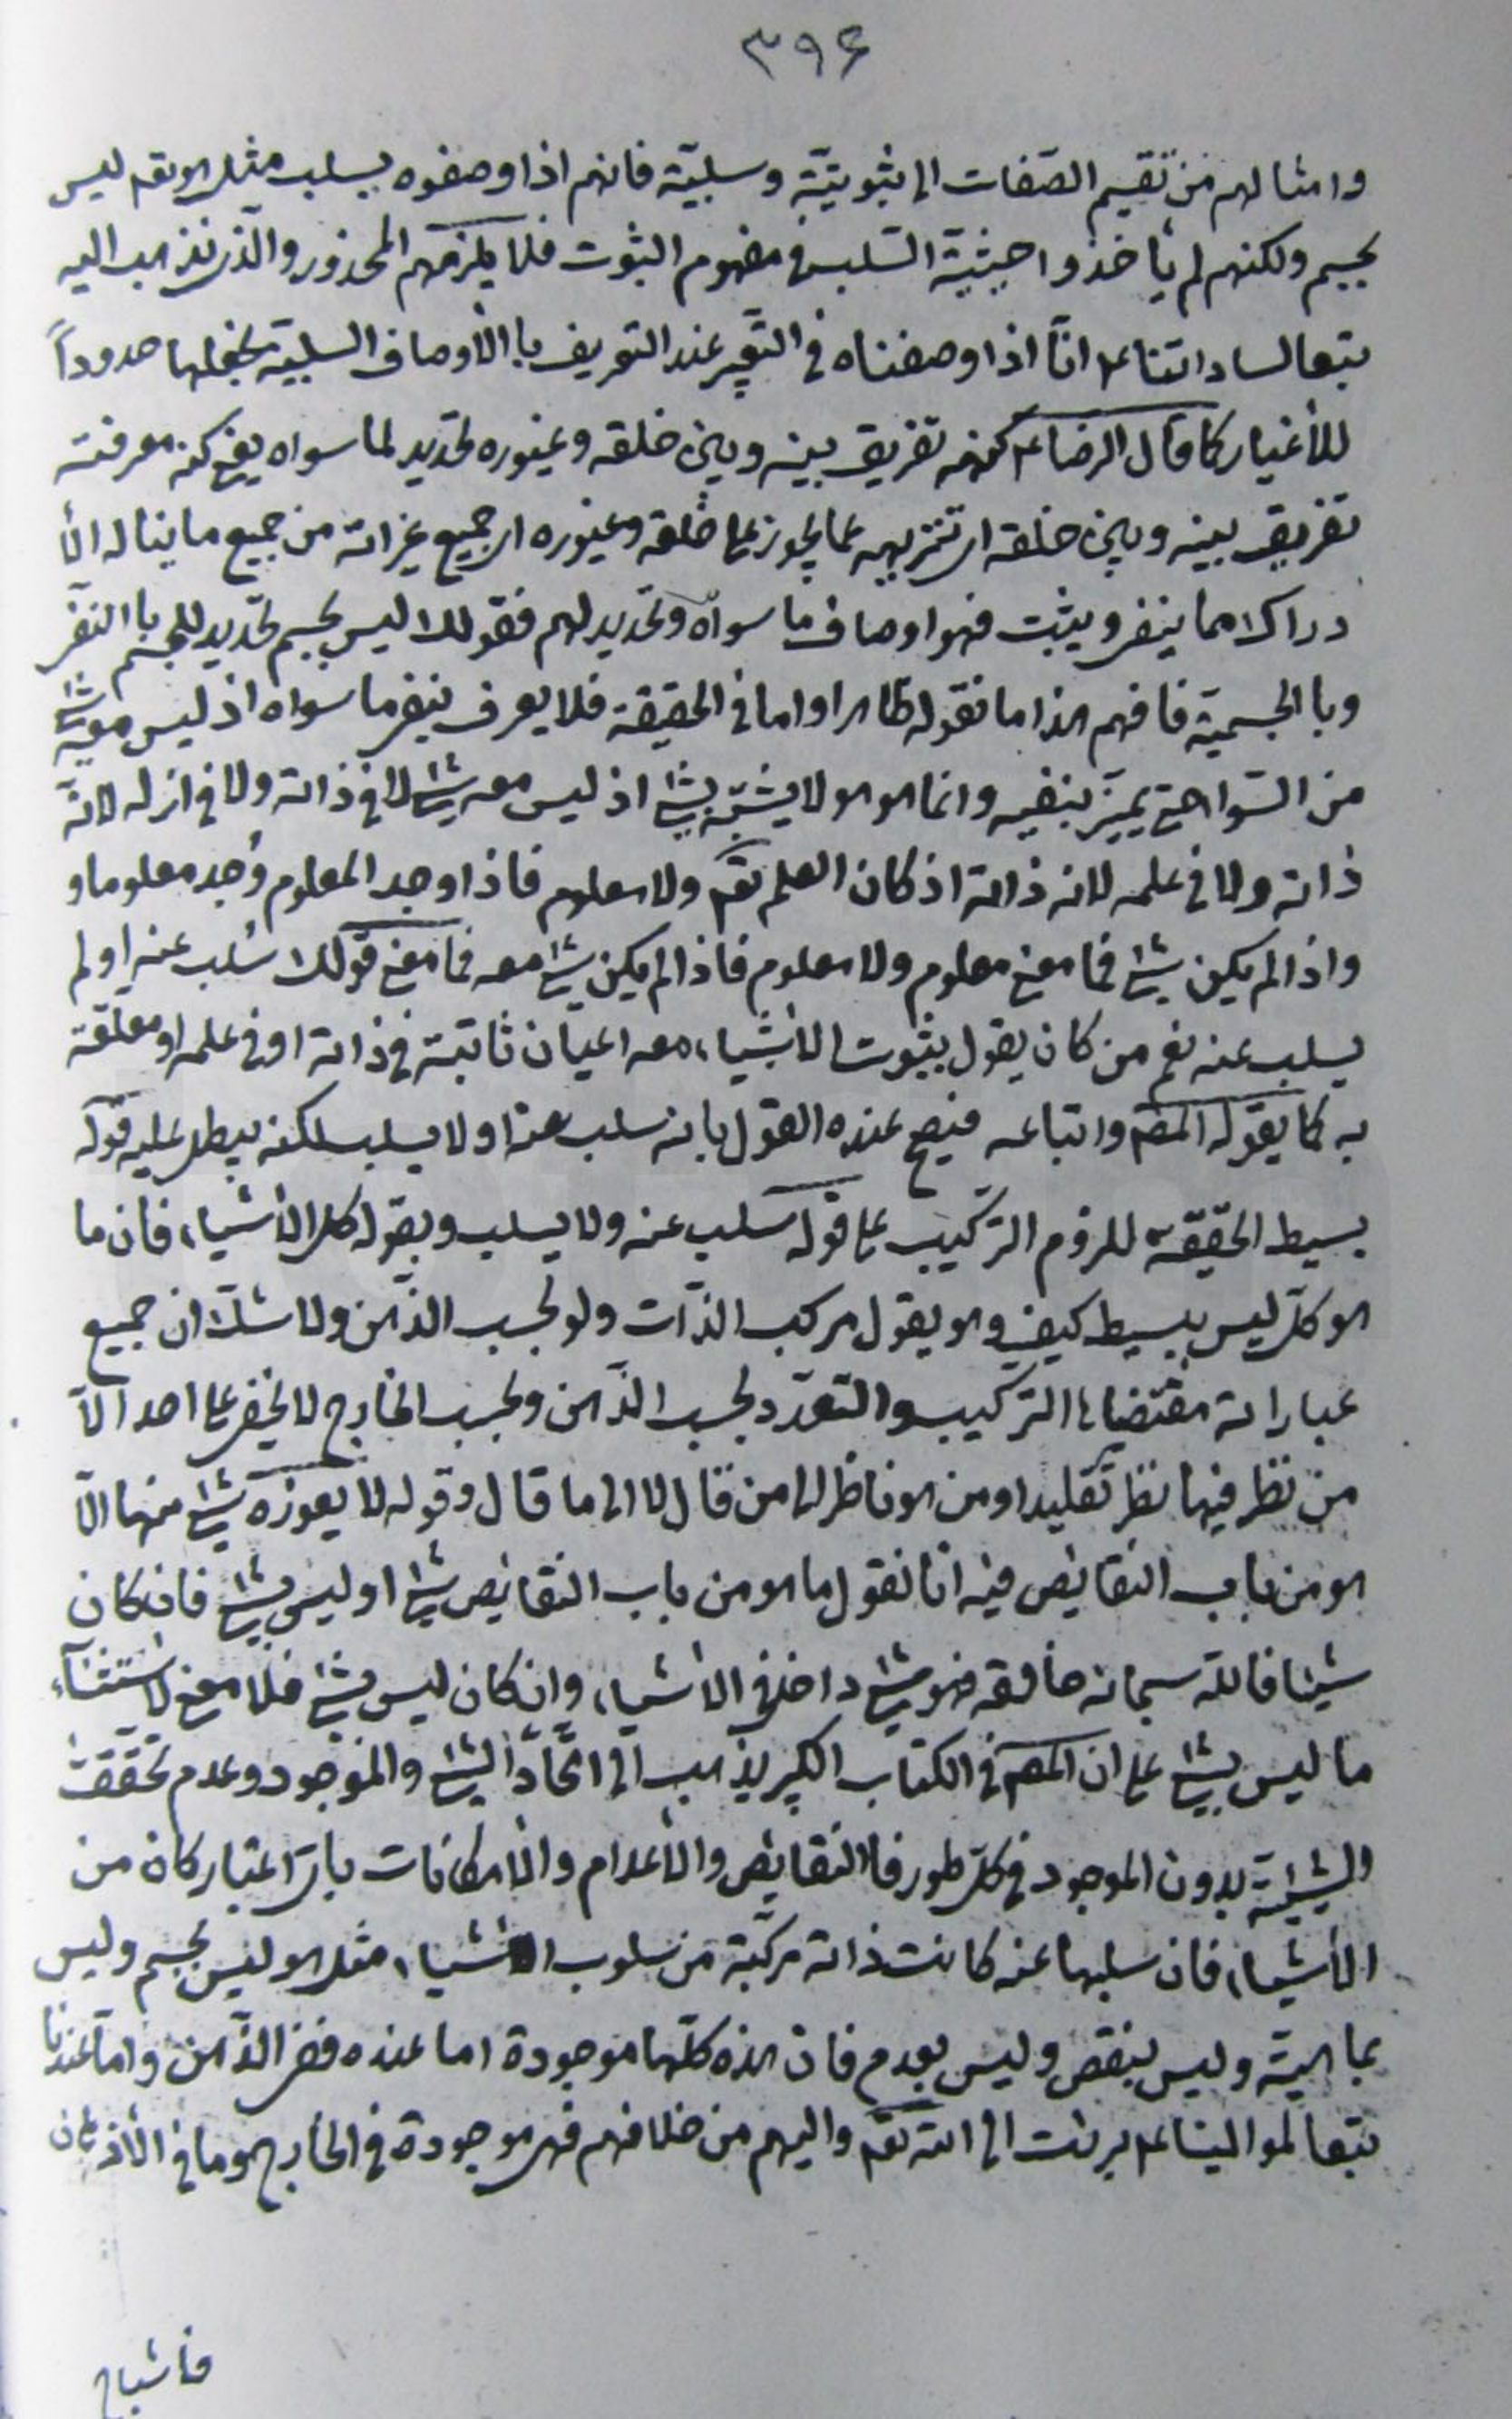 ٣٩۶
وامثالهم من تقسيم الصّفات الى ثبوتيّة وسلبيّة فانهم اذا وصفوه بسلب مثل هو تعم ليس
بجسم ولكنهم لم يأخذوا حيثيّة السّلب فى مفهوم الثبوت فلا يلزمهم المحذور والّذى نذهب اليه
بتعا لساداتنا ع انّا اذا وصفناه فى التّعبير عند التعريف باالأوصاف السلبيّة نجعلها حدوداً
للأغيار كما قال الرضا ع كنهه تفريق بينه وبين خلقه وغيوره تحديد لما سواه يعنى كنه معرفته
تفريق بينه وبين خلقه اى تنزيهه عما يجوز على خلقه وغيوره اى جميع غيراته من جميع ما يناله الأ
دراك مما ينفى ويثبت فهو اوصاف ما سواه وتحديد لهم فقولك ليس بجسم تحديد للجسم باالنفى
وباالجسمية فافهم هذا ما نقوله ظاهرا واما فى الحقيقة فلا يعرف بنفى ما سواه اذ ليس معه شئ
من السّوا حتى يميّز بنفيه وانما هو هو لا يشتبه بشئ اذ ليس معه شئ لا فى ذاته ولا فى ازله لانّه
ذاته ولا فى علمه لانه ذاته اذ كان العلم تعم ولا معلوم فاذا وجد المعلوم وُجد معلوما و
واذا لم يكن شئ فما معنى معلوم ولا معلوم فاذا لم يكن شئ معه فما معنى قولك سُلب عنه او لم
يسلب عنه نعم من كان يقول بثبوت الأشياء معه اعيان ثابتة فى ذاته او فى علمه او معلقة
به كما يقوله المص واتباعه فيصح عنده القول بانه سلب عنه او لا يسلب لكنه يبطل عليه قوله
بسيط الحقيقة للزوم التركيب على قوله سلب عنه ولا يسلب وبقوله كل الأشياء فان ما
هو كل ليس ببسيط كيف وهو يقول مركب الذّات ولو بحسب الذّهن ولا شكّ ان جميع
عباراته مقتضيات التركيب والتعدّد بحسب الذّهن وبحسب الخارج لا يخفى على احد الّا
من نظر فيها نظر تقليد او من هو ناظر الى من قال لا الى ما قال وقوله لا يعوزه شئ منها الّا
هو من باب النقائص فيه انا نقول ما هو من باب النقائص شئ او ليس بشئ فان كان
شيئا فالله سبحانه خالقه فهو شئ داخل فى الأشياء وان كان ليس بشئ فلا معنى لاستثناء
ما ليس بشئ على ان المص فى الكتاب الكبير يذهب الى اتّحاد الشئ والموجود وعدم تحقق
الشيئيّة بدون الموجود فى كل طور فاالنقائص والأعدام والأمكانات باىّ اعتبار كان من
الأشياء فان سلبها عنه كانت ذاته مركّبة من سلوب الأشياء مثل هو ليس بجسم وليس
بماهيّة وليس بنقص وليس بعدم فان هذه كلّها موجودة اما عنده ففى الذّهن وامّا عندنا
بتعا لموالينا ع برئت الى الله تعم واليهم من خلافهم فهى موجودة فى الخارج وما فى الأذهان
فاشباح